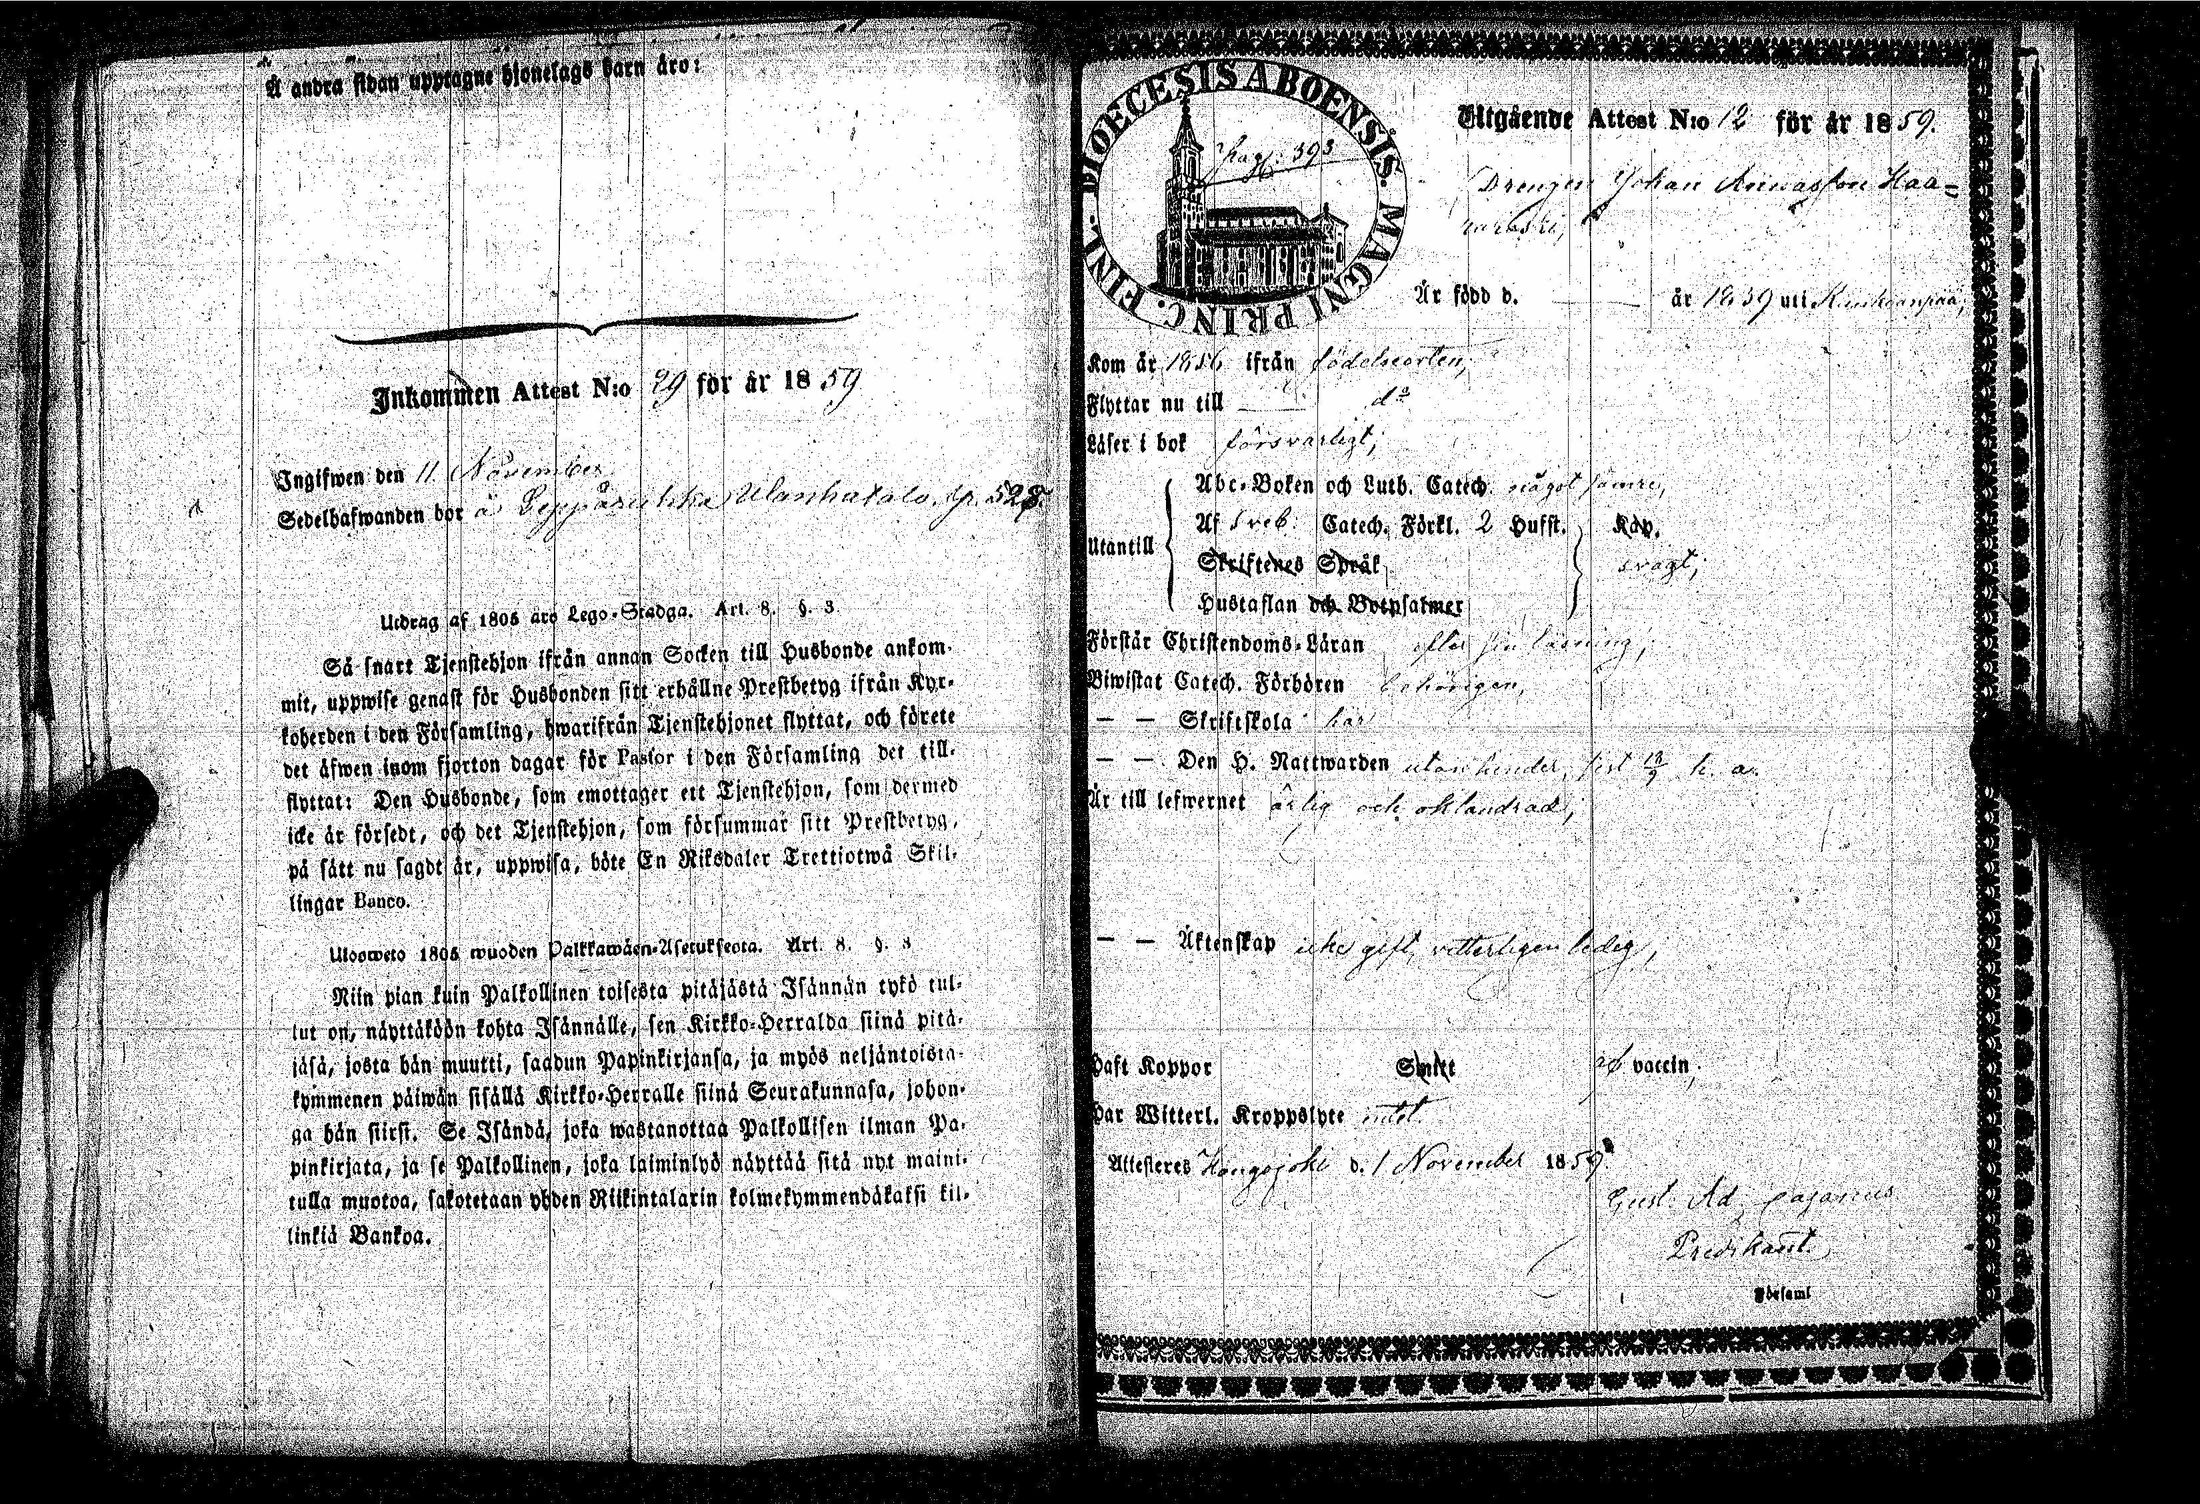 Å andra sidan upptagne hjonelags barn äro:
Inkommen Attest N:o 29 för år 1859
Ingifwen den 11 November
Sedelhafwanden bor å p. 528.
Utdrag af 1805 års Lego-Stadga. Art. 8. §. 3
Så snart Tjenstehjon ifrån annan Socken till Husbonde ankom-
mit, uppwise genast för Husbonden sitt erhållne Prestbetyg ifrån Kyr-
koherden i den Församling, hwarifrån Tjenstehjonet flyttat, och förete
det äfwen inom fjorton dagar för Pastor i den Församling det till-
flyttat: Den Husbonde, som emottager ett Tjenstehjon, som dermed
icke är försedt, och det Tjenstehjon, som försummar sitt Prestbetyg,
på sätt nu sagdt är, uppwisa, böte En Riksdaler Trettiotwå Skil-
lingar Banco.
Ulosweto 1805 wuoden Palkkawäen-Asetuksesta. Art. 8. §. 3
Niin pian kuin Palkollinen toisesta pitäjästä Isännän tykö tul-
lut on, näyttäköön kohta Isännälle, sen Kirkko-Herralda siinä pitä-
jäsä, josta hän muutti, saadun Papinkirjansa, ja myös neljäntoista-
kymmenen päiwän sisällä Kirkko-Herralle siinä Seurakunnasa, johon-
ga hän siirsi. Se Isändä, joka wastanottaa Palkollisen ilman Pa-
pinkirjata, ja se Palkollinen, joka laiminlyö näyttää sitä nyt maini-
tulla muotoa, sakotetaan yhden Riikintalarin kolmekymmendäkaksi kil-
linkiä Bankoa.
DIOECESIS ABOENSIS. MAGNI PRINC. FINL.
Pag: 393
Utgående Attest N:o 12 för år 1859.
Drengen Johan Haa=
Är född d. — år 1839 uti Kankaanpää,
Kom år 1856 ifrån födelseorten,
Flyttar nu till — d:o
Läser i bok försvarligt,
Utantill
Abc-Boken och Luth. Catech. något sämre,
Af Sveb. Catech. Förkl. 2 Hufst. Kap.
Skriftenes Språk svagt,
Hustaflan och Botpsalmer
Förstår Christendoms-Läran efter sin läsning,
Biwistat Catech. Förhören behörigen,
— — Skriftskola har
— — Den H. Nattwarden utan hinder, sist 18/9 h. a.
Är till lefwernet ärlig och oklandrad,
— — Äktenskap icke gift, vitterligen ledig,
Haft Koppor Smitt af vaccin,
Har Witterl. Kroppslyte intet.
Attesteres Hongojoki d. 1 November 1859.
Gust. Ad. Cajanus
Predikant.
Församl